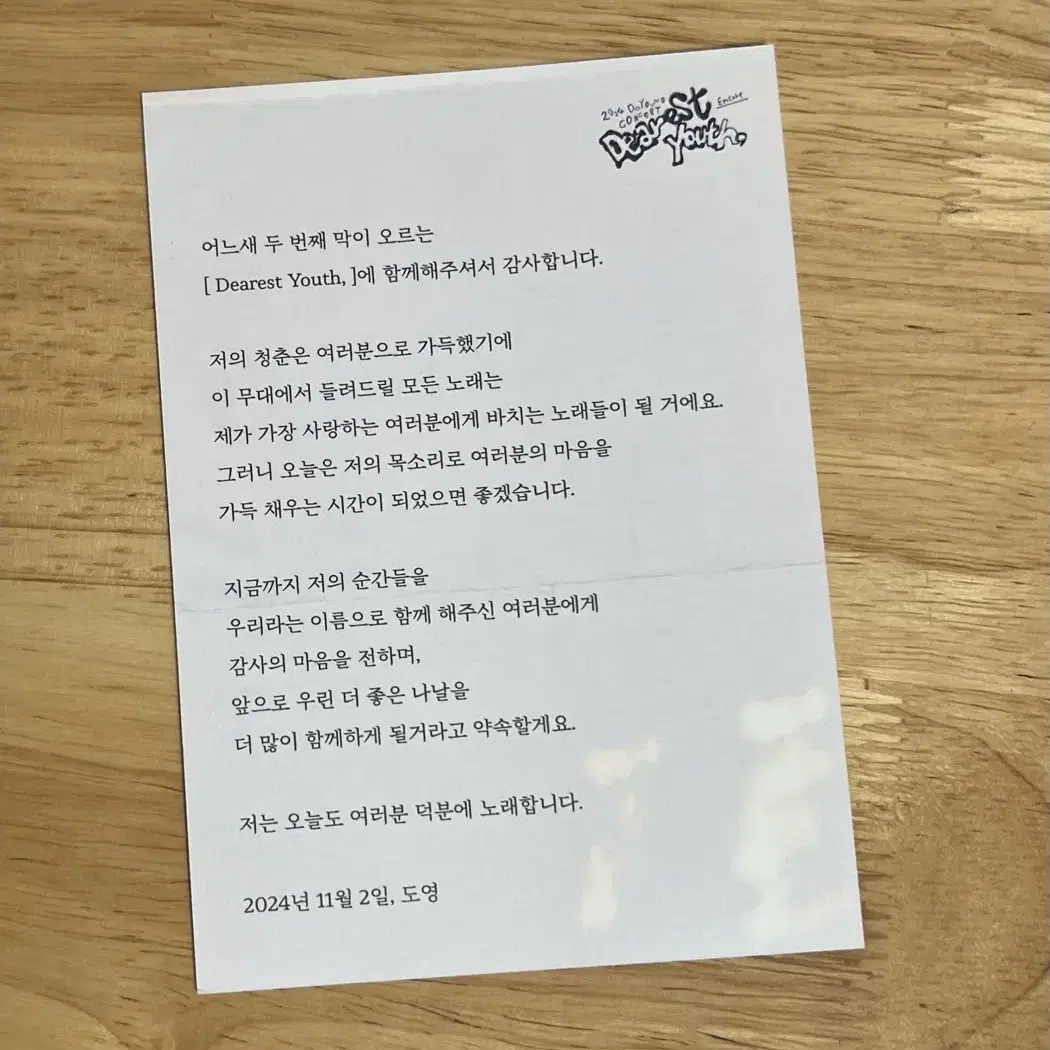 2024 DOYOUNG
CONCERT
Encore
Dearest
Youth,
어느새 두 번째 막이 오르는
[ Dearest Youth, ]에 함께해주셔서 감사합니다.
저의 청춘은 여러분으로 가득했기에
이 무대에서 들려드릴 모든 노래는
제가 가장 사랑하는 여러분에게 바치는 노래들이 될 거에요.
그러니 오늘은 저의 목소리로 여러분의 마음을
가득 채우는 시간이 되었으면 좋겠습니다.
지금까지 저의 순간들을
우리라는 이름으로 함께 해주신 여러분에게
감사의 마음을 전하며,
앞으로 우린 더 좋은 나날을
더 많이 함께하게 될거라고 약속할게요.
저는 오늘도 여러분 덕분에 노래합니다.
2024년 11월 2일, 도영